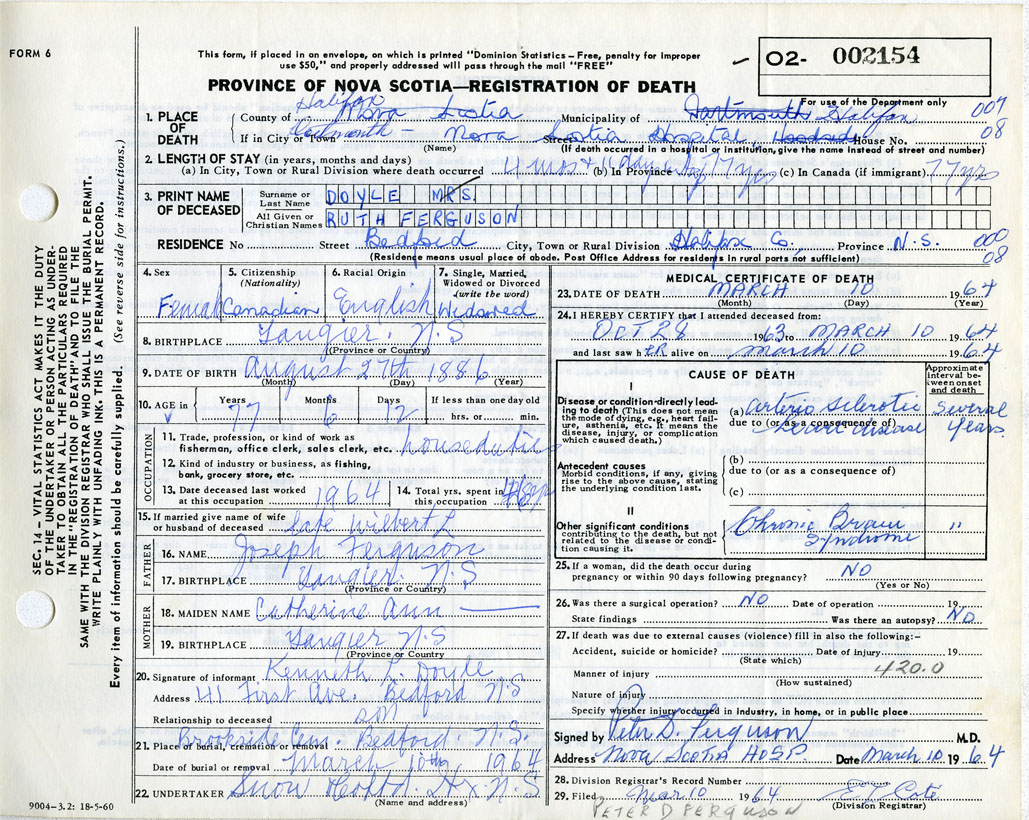 FORM 6
This form, if placed in an envelope, on which is printed "Dominion Statistics – Free, penalty for improper
use $50," and properly addressed will pass through the mail "FREE"
O2- 002154
PROVINCE OF NOVA SCOTIA—REGISTRATION OF DEATH
For use of the Department only
1. PLACE OF DEATH
County of Halifax Nova Scotia Municipality of Dartmouth Halifax 007
If in City or Town Dartmouth – Nova Scotia Hospital, Street House No. 08
(Name) (If death occurred in a hospital or institution, give the name instead of street and number)
2. LENGTH OF STAY (in years, months and days)
(a) In City, Town or Rural Division where death occurred 4 mos + 11 days (b) In Province 77 yrs (c) In Canada (if immigrant) 77 yrs
3. PRINT NAME OF DECEASED
Surname or Last Name DOYLE MRS.
All Given or Christian Names RUTH FERGUSON
RESIDENCE No Street Bedford City, Town or Rural Division Halifax Co., Province N.S. 000
(Residence means usual place of abode. Post Office Address for residents in rural parts not sufficient) 08
4. Sex Female
5. Citizenship (Nationality) Canadian
6. Racial Origin English
7. Single, Married, Widowed or Divorced (write the word) Widowed
8. BIRTHPLACE Tangier, N.S
(Province or Country)
9. DATE OF BIRTH August 27th 1886
(Month) (Day) (Year)
10. AGE in Years Months Days If less than one day old
77 6 12 hrs. or min.
OCCUPATION
11. Trade, profession, or kind of work as fisherman, office clerk, sales clerk, etc. houseduties
12. Kind of industry or business, as fishing, bank, grocery store, etc.
13. Date deceased last worked at this occupation 1964
14. Total yrs. spent in this occupation
15. If married give name of wife or husband of deceased late Wilbert L
FATHER
16. NAME Joseph Ferguson
17. BIRTHPLACE Tangier, N.S
(Province or Country)
MOTHER
18. MAIDEN NAME Catherine Ann
19. BIRTHPLACE Tangier N.S
(Province or Country)
20. Signature of informant Kenneth L. Doyle
Address 41 First Ave. Bedford N.S
Relationship to deceased son
21. Place of burial, cremation or removal Brookside Cem. Bedford. N.S.
Date of burial or removal March 10th, 1964
22. UNDERTAKER Snow Hfx. N.S
(Name and address)
MEDICAL CERTIFICATE OF DEATH
23. DATE OF DEATH MARCH 10 1964
(Month) (Day) (Year)
24. I HEREBY CERTIFY that I attended deceased from:
OCT 28 1963 to MARCH 10 1964
and last saw hER alive on March 10 1964
CAUSE OF DEATH
Approximate interval between onset and death
I
Disease or condition directly leading to death (This does not mean the mode of dying, e.g., heart failure, asthenia, etc. It means the disease, injury, or complication which caused death.)
(a) Arterio Sclerotic Several
due to (or as a consequence of) heart disease Years.
Antecedent causes
Morbid conditions, if any, giving rise to the above cause, stating the underlying condition last.
(b)
due to (or as a consequence of)
(c)
II
Other significant conditions contributing to the death, but not related to the disease or condition causing it.
Chronic Brain Syndrome "
25. If a woman, did the death occur during pregnancy or within 90 days following pregnancy? NO
(Yes or No)
26. Was there a surgical operation? NO Date of operation 19
State findings Was there an autopsy? NO
27. If death was due to external causes (violence) fill in also the following:–
Accident, suicide or homicide? Date of injury 19
(State which)
Manner of injury 420.0
(How sustained)
Nature of injury
Specify whether injury occurred in industry, in home, or in public place
Signed by Peter D. Ferguson M.D.
Address Nova Scotia HOSP. Date March 10 1964
28. Division Registrar's Record Number
29. Filed Mar 10 1964 Coté
(Division Registrar)
PETER D FERGUSON
SEC. 14 – VITAL STATISTICS ACT MAKES IT THE DUTY
OF THE UNDERTAKER OR PERSON ACTING AS UNDER-
TAKER TO OBTAIN ALL THE PARTICULARS REQUIRED
IN THE "REGISTRATION OF DEATH" AND TO FILE THE
SAME WITH THE DIVISION REGISTRAR WHO SHALL ISSUE THE BURIAL PERMIT.
WRITE PLAINLY WITH UNFADING INK. THIS IS A PERMANENT RECORD.
Every item of information should be carefully supplied. (See reverse side for instructions.)
9004–3.2: 18-5-60